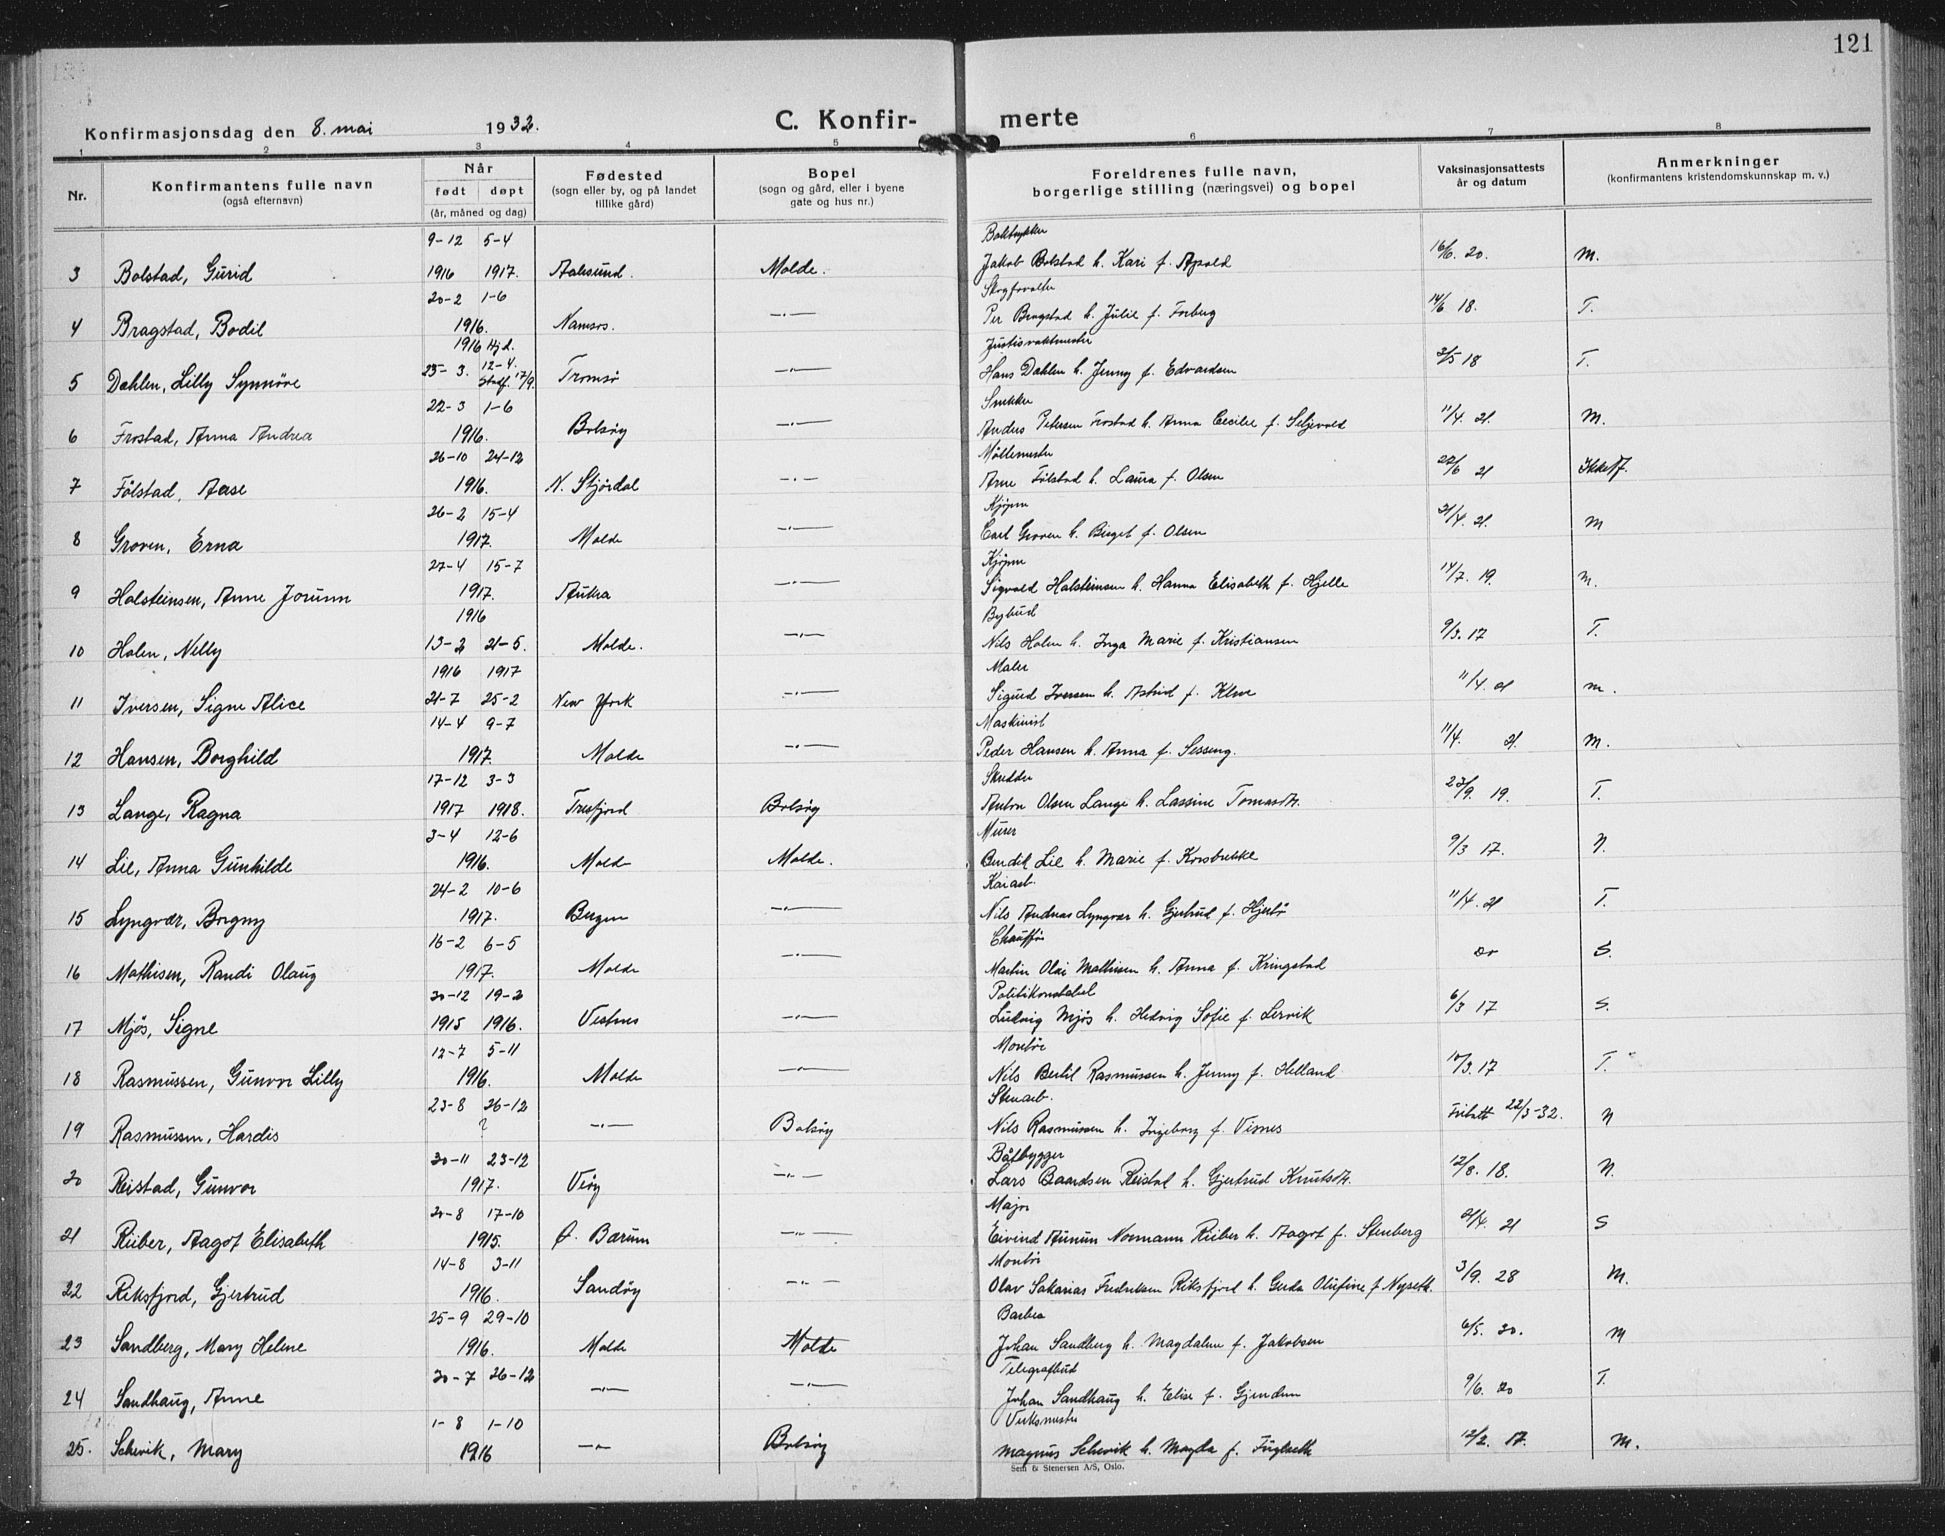 121
Konfirmasjonsdag den 8. mai 1932. C. Konfir- merte
1 2 3 4 5 6 7 8
Nr. Konfirmantens fulle navn (også efternavn) Når født døpt (år, måned og dag) Fødested (sogn eller by, og på landet tillike gård) Bopel (sogn og gård, eller i byene gate og hus nr.) Foreldrenes fulle navn, borgerlige stilling (næringsvei) og bopel Vaksinasjonsattests år og datum Anmerkninger (konfirmantens kristendomskunnskap m. v.)
9-12 5-4 Boktrykker
3 Bolstad, Gurid 1916 1917. Aalesund. Molde. Jakob Bolstad h. Kari f. Apold 16/6. 20. M.
20-2 1-6 Skogforvalter
4 Bragstad, Bodil 1916. Namsos. -"- Per Bragstad h. Julie f. Forberg 14/6 18. T.
1916 Hj.d. Justisvaktmester
5 Dahlen, Lilly Synnöve 23-3. 12-4. Stadf. 17/9. Tromsø -"- Hans Dahlen h. Jenny f. Edvardsen 3/5 18 T.
22-3 1-6 Snekker
6 Frostad, Anna Andrea 1916. Bolsøy -"- Anders Petersen Frostad h. Anna Cecilie f. Seljevold 11/4. 21. M.
26-10 24-12 Möllemester
7 Fölstad, Aase 1916. N. Stjørdal -"- Arne Fölstad h. Laura f. Olsen 22/6 21
26-2 15-4 Kjøpm
8 Groven, Erna 1917. Molde -"- Carl Groven h. Birget f. Olsen 21/4. 21. M
27-4 15-7 Kjøpm
9 Holsteinsen, Anne Jorunn 1917. Aukra -"- Sigvald Holsteinsen h. Hanna Elisabeth f. Hjelle 14/7. 19. M.
1916 Bybud
10 Holen, Nelly 13-2 21-5. Molde. -"- Nils Holen h. Inga Marie f. Kristiansen 9/3. 17 T.
1916 1917 Maler
11 Iversen, Signe Alice 21-7 25-2 New York -"- Sigurd Iversen h. Astrid f. 11/4. 21 M.
14-4 9-7 Maskinist
12 Hansen, Borghild 1917. Molde -"- Peder Hansen h. Anna f. Sesseng. 11/4. 21. M.
17-12 3-3 Skredder
13 Lange, Ragna 1917 1918. Tresfjord Bolsøy Anton Olsen Lange h. Lassine Tomasdt. 23/9. 19. T.
3-4 12-6 Murer
14 Lie, Anna Gunhilde 1916. Molde Molde. Bendik Lie h. Marie f. Korsbrekke 9/3 17. N.
24-2 10-6 Kaiarb.
15 Lyngvær, Borgny 1917. Bergen -"- Nils Andreas Lyngvær h. Gjertrud f. Hjertø 11/4. 21 T.
16-2 6-5 Chauffør
16 Mathisen, Randi Olaug 1917. Molde -"- Martin Olai Mathisen h. Anna f. Kringstad do S.
30-12 19-2 Politikonstabel
17 Mjös, Signe 1915 1916. Vestnes -"- Ludvig Mjös h. Hedvig Sofie f. Lervik 6/3 17 S.
12-7 5-11 Montör
18 Rasmussen, Gunvor Lilly 1916. Molde -"- Nils Bertil Rasmussen h. Jenny f. Helland 17 T.
23-8 26-12 Stenarb.
19 Rasmussen, Hardis ? -"- Bolsøy Nils Rasmussen h. Ingeborg f. Visnes Fritatt 22/3-32. N
30-11 23-12 Båtbygger
20 Reistad, Gunvor 1917. Veøy -"- Lars Baardsen Reistad h. Gjertrud Knutsdt. 12/8. 18. N.
20-8 17-10 Major
21 Rieber, Aagot Elisabeth 1915. Ø. Bærum -"- Eivind Aunun Normann Rieber h. Aagot f. Stenberg 21/4. 21 S
14-8 3-11 Montör
22 Riksfjord, Gjertrud 1916. Sandøy -"- Olav Sakarias Fredriksen Riksfjord h. Gerda Olufine f Nyseth. 3/9. 28 M.
25-9 29-10 Barber
23 Sandberg, Mary Helene 1916. Molde Molde Johan Sandberg h. Magdalene f. Jakobsen 6/5. 20. M
30-7 26-12 Telegrafbud
24 Sandhaug, Anne -"- -"- Johan Sandhaug h. Elise f. Gjendem 9/6. 20 T.
1-8 1-10 Verksmester
25. Schevik, Mary 1916 -"- Bolsøy Magnus Schevik h. Magda f. Fuglseth 12/2. 17. M.
Sem & Stenersen A/S, Oslo.